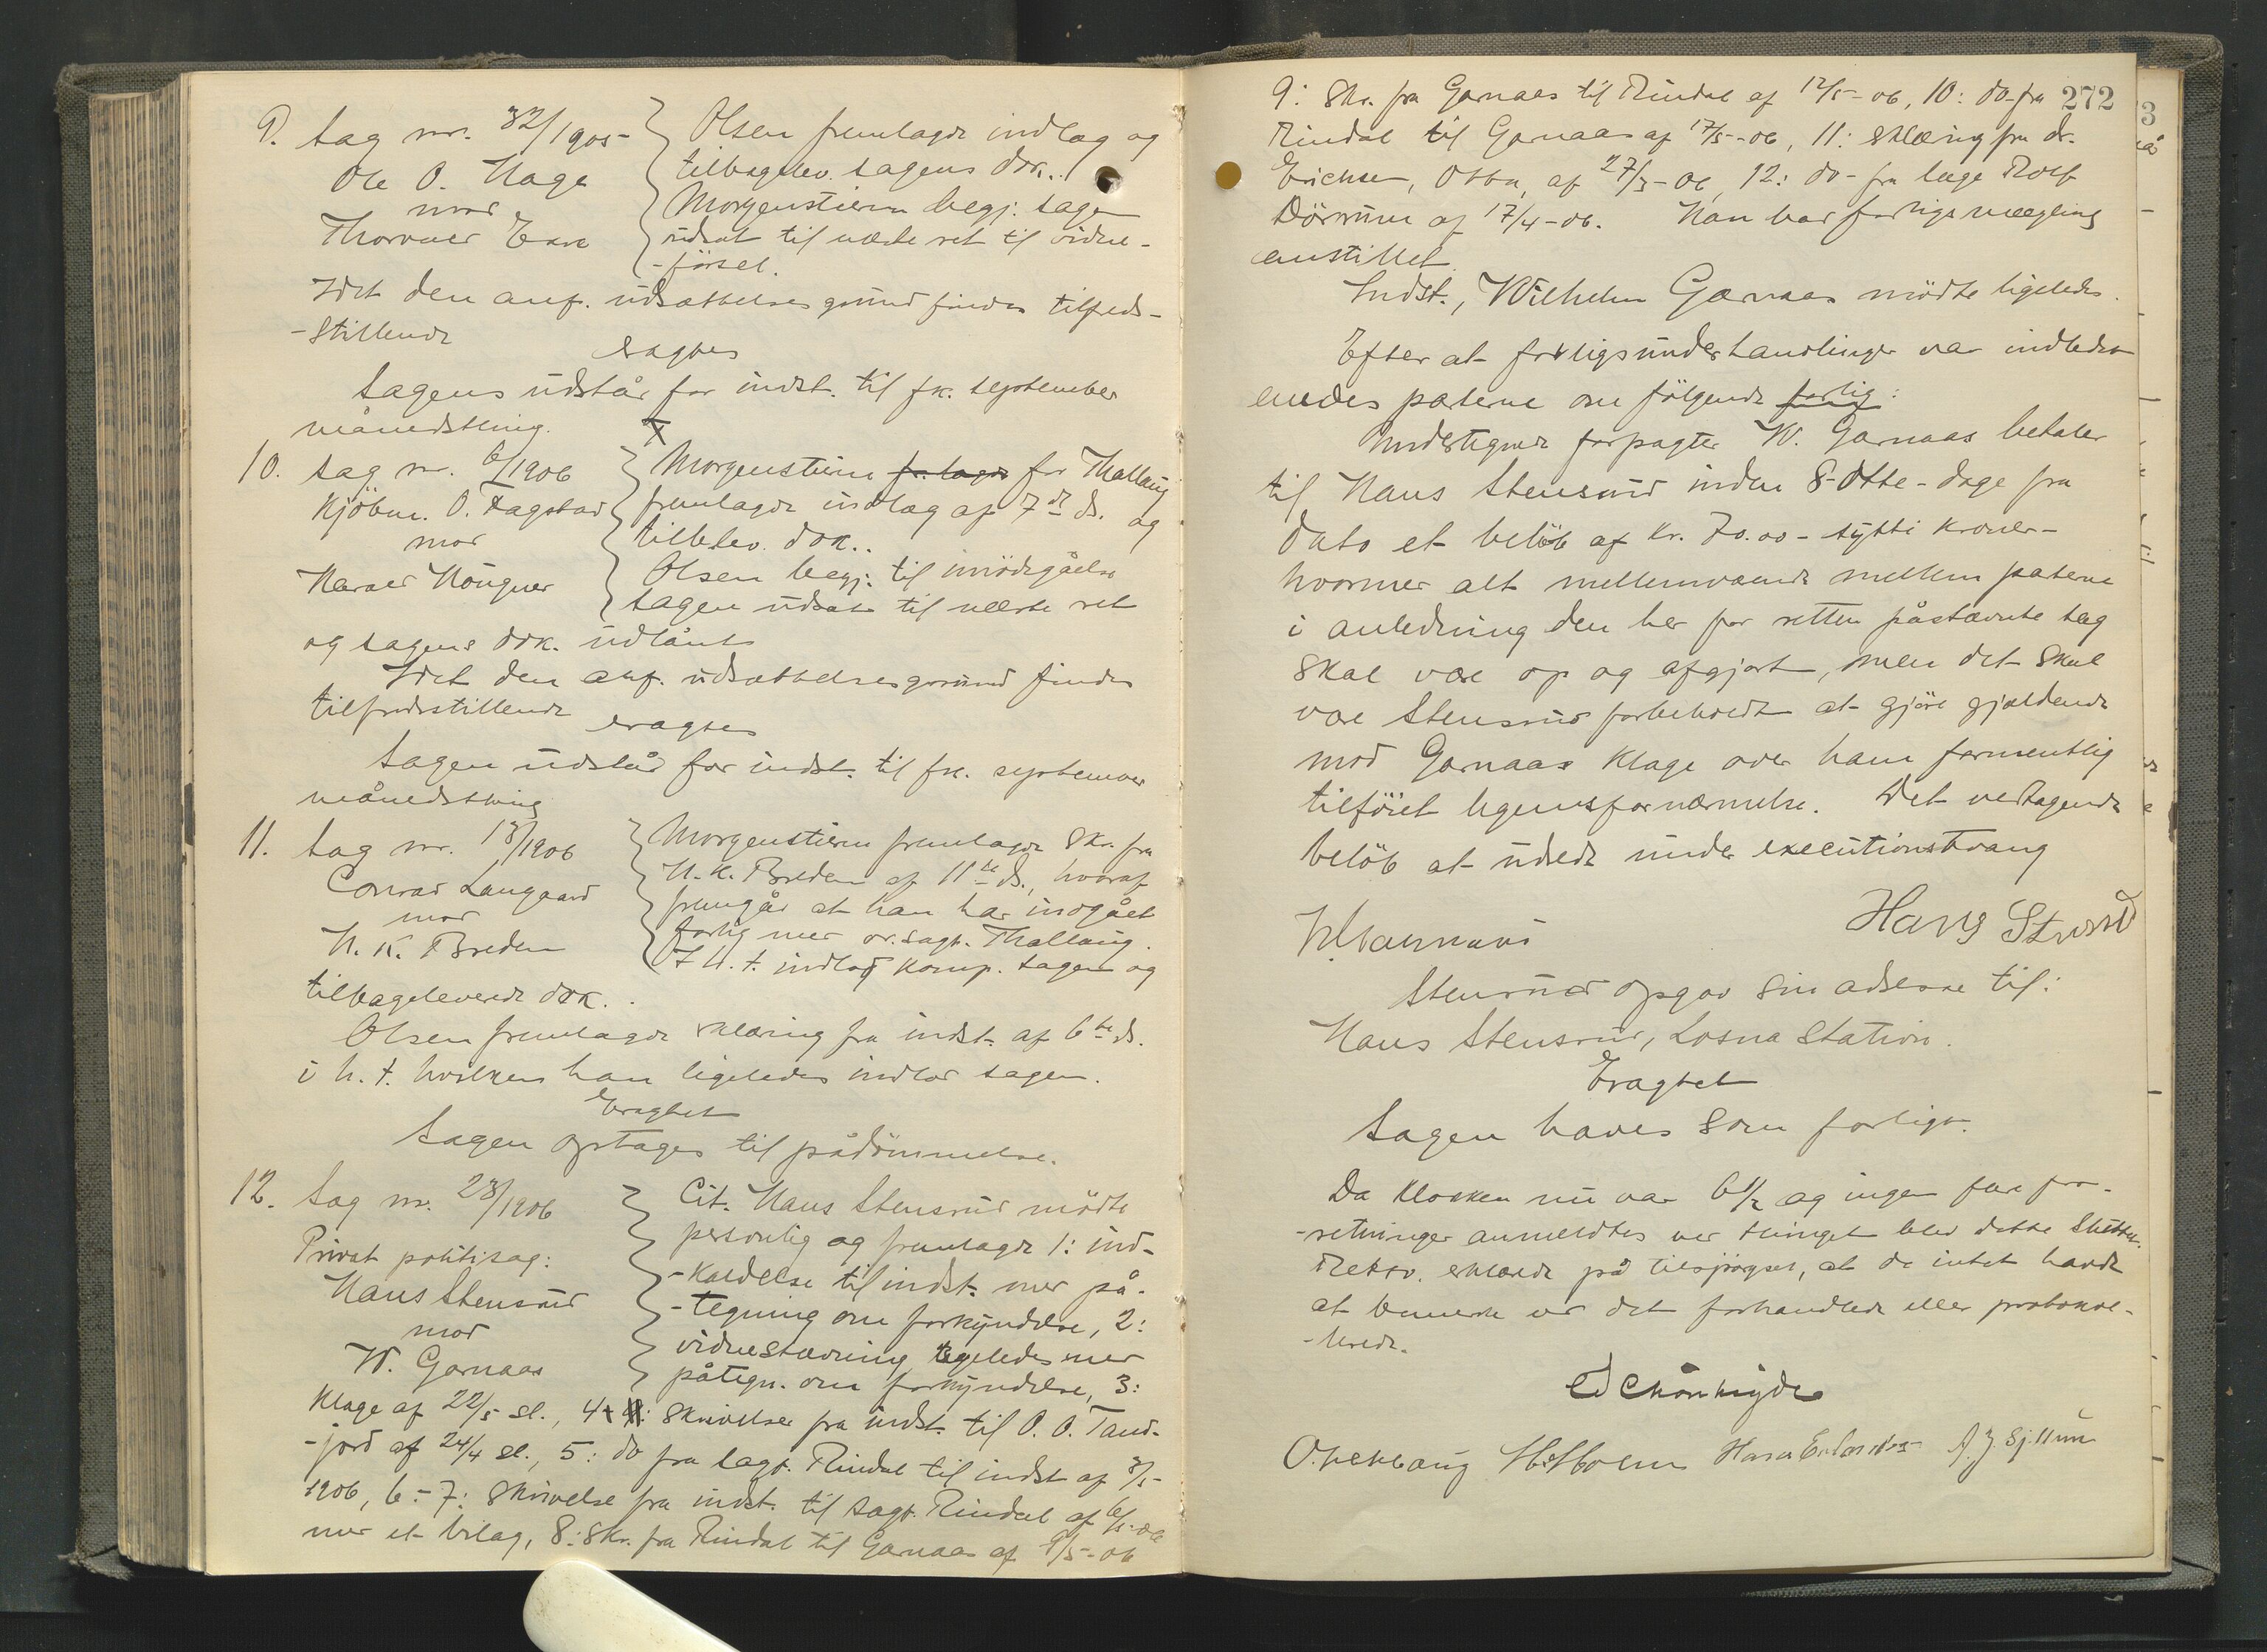 9. Sag nr. 32/1905-
Ole O. Hage
mod
Thorvald
Olsen fremlagde indlæg og
tilbagelev. sagens dok..
Morgenstierne begj. sagen
udsat til næste ret til vidne-
-førsel.
Idet den anf. udsættelsesgrund findes tilfreds-
-stillende
eragtes
Sagens udstår for indst. til fk. september
månedsthing.
10. Sag nr. 6/1906
Kjöbm. O. Fagstad
mod
Harald
Morgenstierne for Thallaug
fremlagde indlæg af 7de ds. og
tilbelev. dok..
Olsen begj. til imødegåelse
sagen udsat til næste ret
og sagens dok. udlånt
Idet den anf. udsættelsesgrund findes
tilfredsstillende
eragtes
Sagen udstår for indst. til fk. september
månedsthing
11. Sag nr. 13/1906
Conrad Langaard
mod
H. K. Breden
Morgenstierne fremlagde skr. fra
H. K. Breden af 11te ds., hvoraf
fremgår at han har indgået
forlig med or.sagf. Thallaug.
I h. t. indlod komp. sagen og
tilbageleverede dok..
Olsen fremlagde erklæring fra indst. af 6te ds.
i h. t. hvilken han ligeledes indlod sagen.
Eragtet
Sagen optages til pådømmelse.
12. Sag nr. 23/1906
Privat politisag:
Hans Stensrud
mod
W. Garnaas
Cit. Hans Stensrud mödte
personlig og fremlagde 1: ind-
-kaldelse til indst. med på-
-tegning om forkyndelse, 2:
vidnestævning ligeledes med
påtegn. om forkyndelse, 3:
Klage af 22/5 sl., 4: skrivelse fra indst. til O. O. Tand-
-jord af 24/4 sl., 5: do fra sagf. Rindal til indst af 3/5-
1906, 6-7: skrivelse fra indst. til sagf. Rindal af 6/5-06
med et bilag, 8: skr. fra Rindal til Garnaas af 9/5-06
272
9: skr. fra Garnaas til Rindal af 12/5-06, 10: do fra
Rindal til Garnaas af 17/5-06, 11: erklæring fra dr.
Erichsen, Otta, af 27/3-06, 12: do- fra læge Rolf
af 17/4-06. Han har forligsmægling
anstillet.
Indst., Wilhelm Garnaas mödte ligeledes.
Efter at forligsunderhandlinger var indledet
enedes parterne om fölgende forlig:
Undertegnede forpagter W. Garnaas betaler
til Hans Stensrud inden 8-otte-dage fra
dato et belöb af kr. 70.00 - sytti kroner-
hvormed alt mellemværende mellem parterne
i anledning den her for retten påstævnte sag
skal være op og afgjort, men det skal
være Stensrud forbeholdt at gjöre gjældende
mod Garnaas klage over ham formentlig
tilföiet legemsfornærmelse. Det vedtagende
belöb at udrede under executionstvang
Hans Stensrud
Stensrud opgav sin adresse til:
Hans Stensrud, Losna station.
Eragtet
Sagen haves som forligt.
Da klokken nu var 6 1/2 og ingen flere for-
-retninger anmeldtes ved thinget blev dette sluttet.
Retsv. erklærede på tilspörgsel, at de intet havde
at bemerke ved det forhandlede eller protokol-
-lerede.